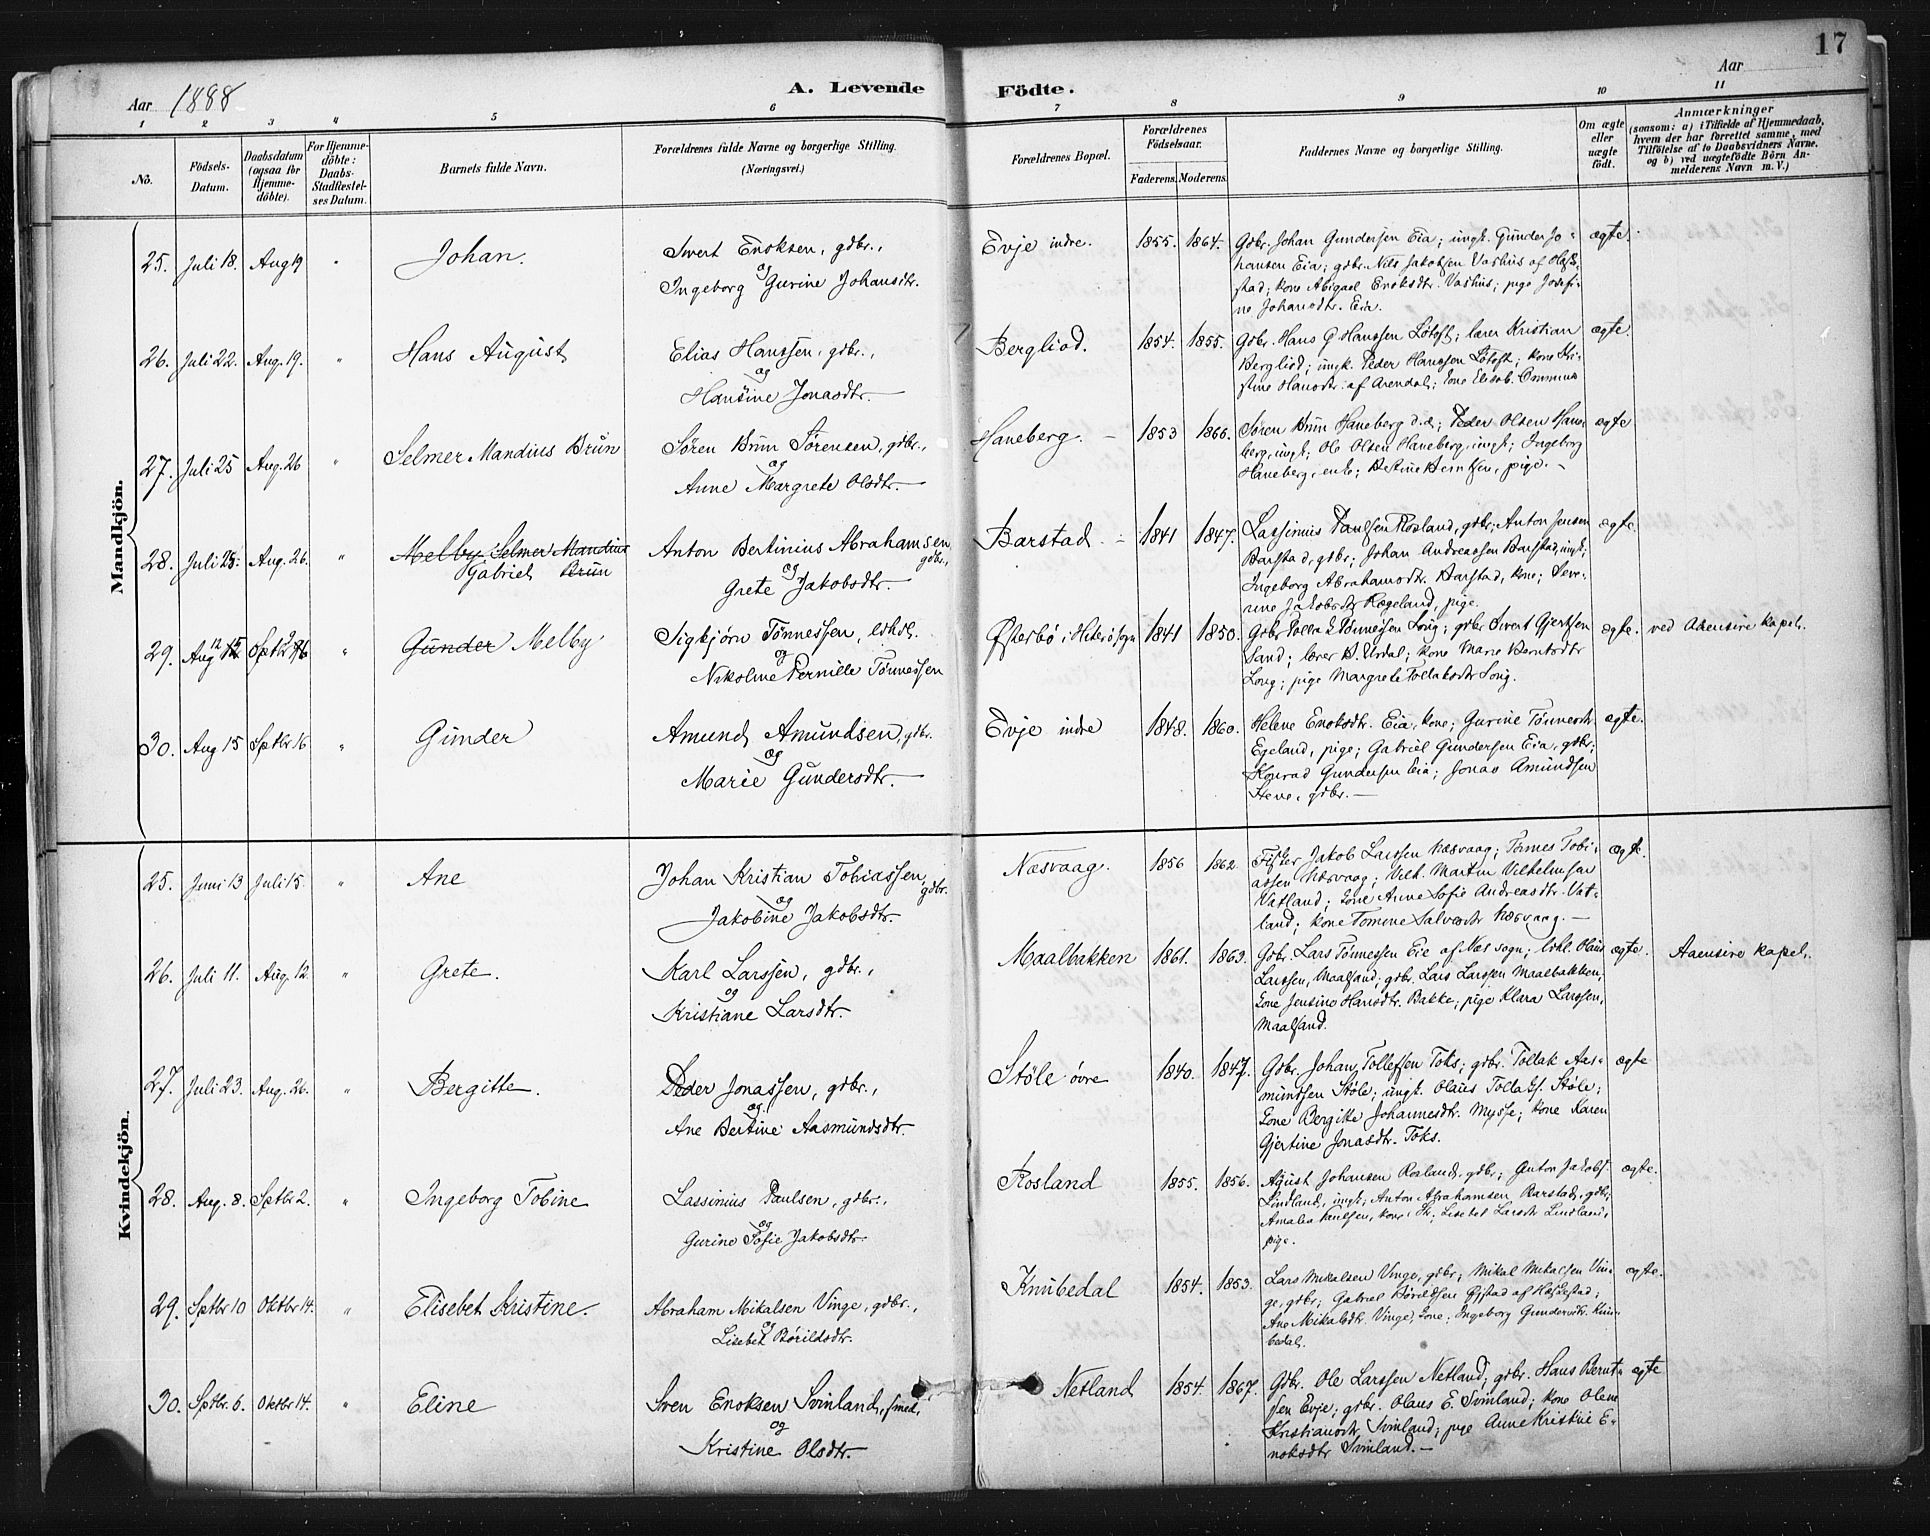 17
Aar 1888
A. Levende Födte.
Aar
1 2 3 " 5 6 7 8 9 10 11
No.
Födsels-Datum.
Daabsdatum (ogsaa for Hjemmedöbte).
For Hjemmedöbte: Daabs-Stadfæstelses Datum.
Barnets fulde Navn.
Forældrenes fulde Navne og borgerlige Stilling. (Næringsvei.)
Forældrenes Bopæl.
Forældrenes Födselsaar.
Faderens. Moderens.
Faddernes Navne og borgerlige Stilling.
Om ægte eller uægte födt.
Anmærkninger
(saasom: a) i Tilfælde af Hjemmedaab,
hvem der har forrettet samme, med
Tilföielse af to Daabsvidners Navne.
og b) ved uægtefödte Börn Anmelderens Navn m. V.)
Mandkjön.
25. Juli 18. Aug 19 " Johan.
Sivert Enoksen, gdbr.,
og
Ingeborg Gurine Johansdtr.
Evje indre. 1855. 1864.
Gdbr. Johan Gundersen Eia; ungk. Gunder Jo-
hansen Eia; gdbr. Nils Jakobsen Vashus af Heske-
stad; kone Abigael Enoksdtr. Vashus; pige Josefi-
ne Johansdtr. Eia.
ægte.
26. Juli 22. Aug. 19. " Hans August
Elias Hanssen, gdbr.,
og
Hansine Jonasdtr.
Bergliod. 1854. 1855.
Gdbr. Hans G Hanssen Løtoft; lærer Kristian
Bergliod; ungk. Peder Hanssen Løtoft; kone Kri-
stine Hansdtr. af Arendal; Kone Elisab. Ommun
ægte.
27. Juli 25 Aug. 26 " Selmer Mandius Brun
Søren Brun Sørensen, gdbr.,
og
Anne Margrete Olsdtr.
Haneberg. 1853 1866.
Søren Brun Haneberg d.æ; Peder Olsen Hane-
berg, ungk; Ole Olsen Haneberg, ungk; Ingeborg
Haneberg, enke; Bertine Berntsen, pige.
ægte
28. Juli 25. Aug. 26. " Melby Selmer Mandius
Gabriel Brun
Anton Bertinius Abrahamsen
gdbr.,
og
Grete Jakobsdtr.
Barstad 1841 1847.
Lassinius Paulsen Rosland, gdbr; Anton Jensen
Barstad, gdbr; Johan Andreassen Barstad, ungk;
Ingeborg Abrahamsdtr. Barstad, kone; Seve-
rine Jakobsdtr Rægeland, pige.
ægte.
29. Aug 12 Sptbr 16 " Gunder Melby
Sigbjørn Tønnessen, lvhdl.
og
Nikoline Pernille Tønnessen
Østerbø i Hiterø sogn 1841 1850.
Gdbr Tollak Tønnessen Loug; gdbr Sivert Gjertsen
Sand; lærer B. Urdal; kone Marie Berntsdtr
Loug; pige Margrete Tollaksdtr Loug.
ægte. ved Aaensire kapel.
30. Aug 15 Sptbr 16 " Gunder
Amund Amundsen, gdbr.
og
Marie Gundersdtr.
Evje indre 1848. 1860.
Helene Enoksdtr. Eia, kone; Gurine Tønnesdtr
Egeland, pige; Gabriel Gundersen Eia, gdbr;
Konrad Gundersen Eia; Jonas Amundsen
Steve, gdbr.
ægte.
Kvindekjön.
25. Juni 13 Juli 15. " Ane
Johan Kristian Tobiassen,
gdbr.
og
Jakobine Jakobsdtr.
Næsvaag. 1856 1862
Fisker Jakob Larssen Næsvaag; Tønnes Tobi-
assen Næsvaag; Vilh. Martin Vilhelmsen
Vatland; kone Anne Sofie Andreasdtr. Vat-
land; kone Tomine Salvesdtr Næsvaag.
ægte.
26. Juli 11. Aug. 12. " Grete.
Karl Larssen, gdbr.,
og
Kristiane Larsdtr.
Maalbakken 1861. 1863.
Gdbr. Lars Tønnessen Eie af Næs sogn; lvhl. Olaus
Larssen, Maalsand; gdbr. Lars Larssen Maalbakken;
kone Jensine Hansdtr. Bakke; pige Klara Larssen,
Maalsand.
ægte. Aaensire kapel.
27. Juli 23. Aug. 26. " Bergitte.
Peder Jonassen, gdbr.,
og
Ane Bertine Aasmundsdtr.
Støle øvre 1840. 1847.
Gdbr. Johan Tollefsen Toks; gdbr. Tollak Aas-
mundsen Støle; ungk. Olaus Tollaks. Støle;
kone Bergitte Johannesdtr. Mysse; kone Karen
Gjertine Jonasdtr. Toks.
ægte
28. Aug. 8. Sptbr 2. " Ingeborg Tobine
Lassinius Paulsen, gdbr.,
og
Gurine Sofie Jakobsdtr.
Rosland 1855. 1856.
August Johansen Rosland, gdbr; Anton Jakobs.
Lindland, ungk; Anton Abrahamsen Barstad, gdbr;
Amalia Paulsen, kone; Lisebet Larsdtr Lindland,
pige.
ægte.
29. Sptbr 10 Oktbr 14. " Elisebet Kristine.
Abraham Mikalsen Vinge, gdbr.,
og
Lisebet Børildsdtr.
Knubedal 1854. 1853.
Lars Mikalsen Vinge, gdbr; Mikal Mikalsen Vin-
ge, gdbr; Gabriel Børildsen Øistad af Heskestad;
Ane Mikalsdtr. Vinge, kone; Ingeborg Gundersdtr. Knu-
bedal.
ægte.
30. Sptbr. 6. Oktbr 14. " Eline
Sven Enoksen Svinland, smed,
og
Kristine Olsdtr.
Netland 1854. 1867.
Gdbr. Ole Larssen Netland; gdbr. Hans Bernt-
sen Evje; gdbr. Olaus E. Svinland; kone Olene
Kristiansdtr Svinland; pige Anne Kristine E-
noksdtr Svinland.
ægte